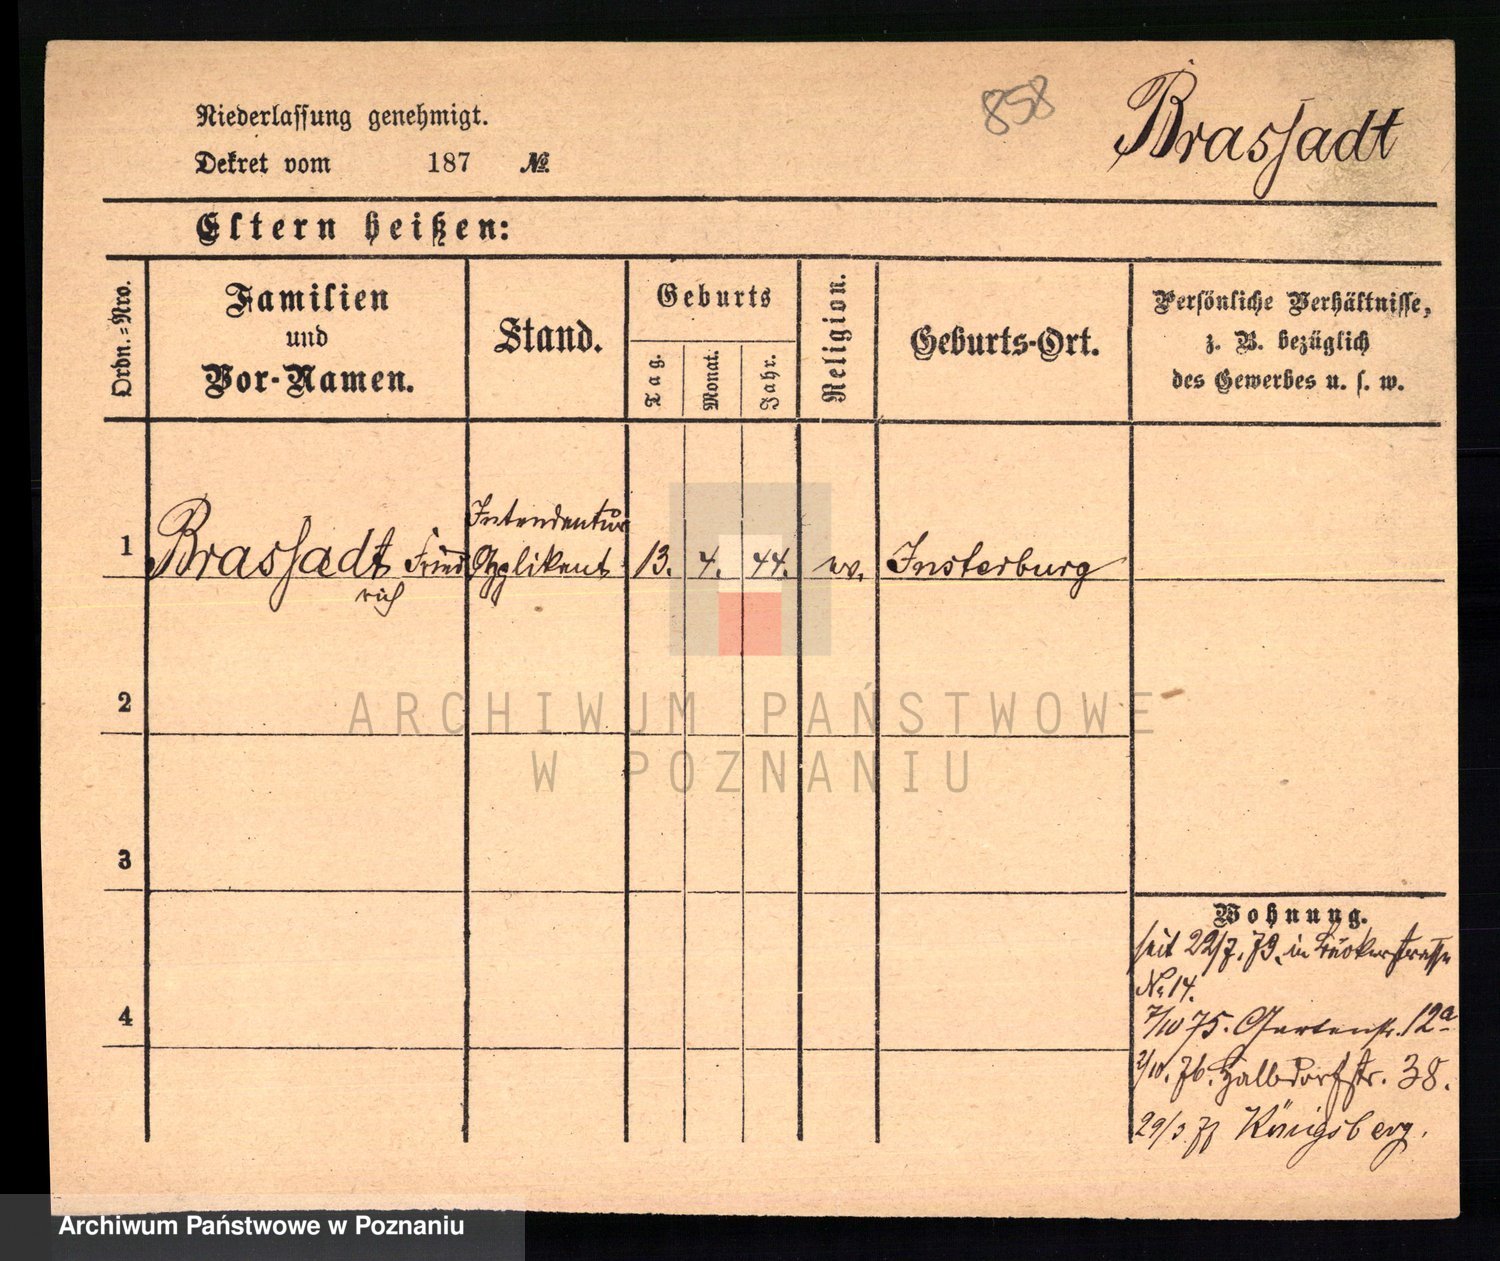 858
Brassadt
Niederlassung genehmigt.
Dekret vom 187 №
Eltern heißen:
Ordn.=Nro.
Familien
und
Vor-Namen.
Stand.
Geburts
Tag.
Monat.
Jahr.
Religion.
Geburts-Ort.
Persönliche Verhältnisse,
z. B. bezüglich
des Gewerbes u. s. w.
1 Brassadt Fried
rich
Intendentur
Applikant
13. 4. 44. ev. Insterburg
2
3
4
Wohnung.
seit 22/7. 73. in
No 14.
7/10 75. Gartenstr. 12a
2/10. 76. Halbdorfstr. 38.
29/3 77 Königsberg.
ARCHIWUM PAŃSTWOWE
W POZNANIU
Archiwum Państwowe w Poznaniu